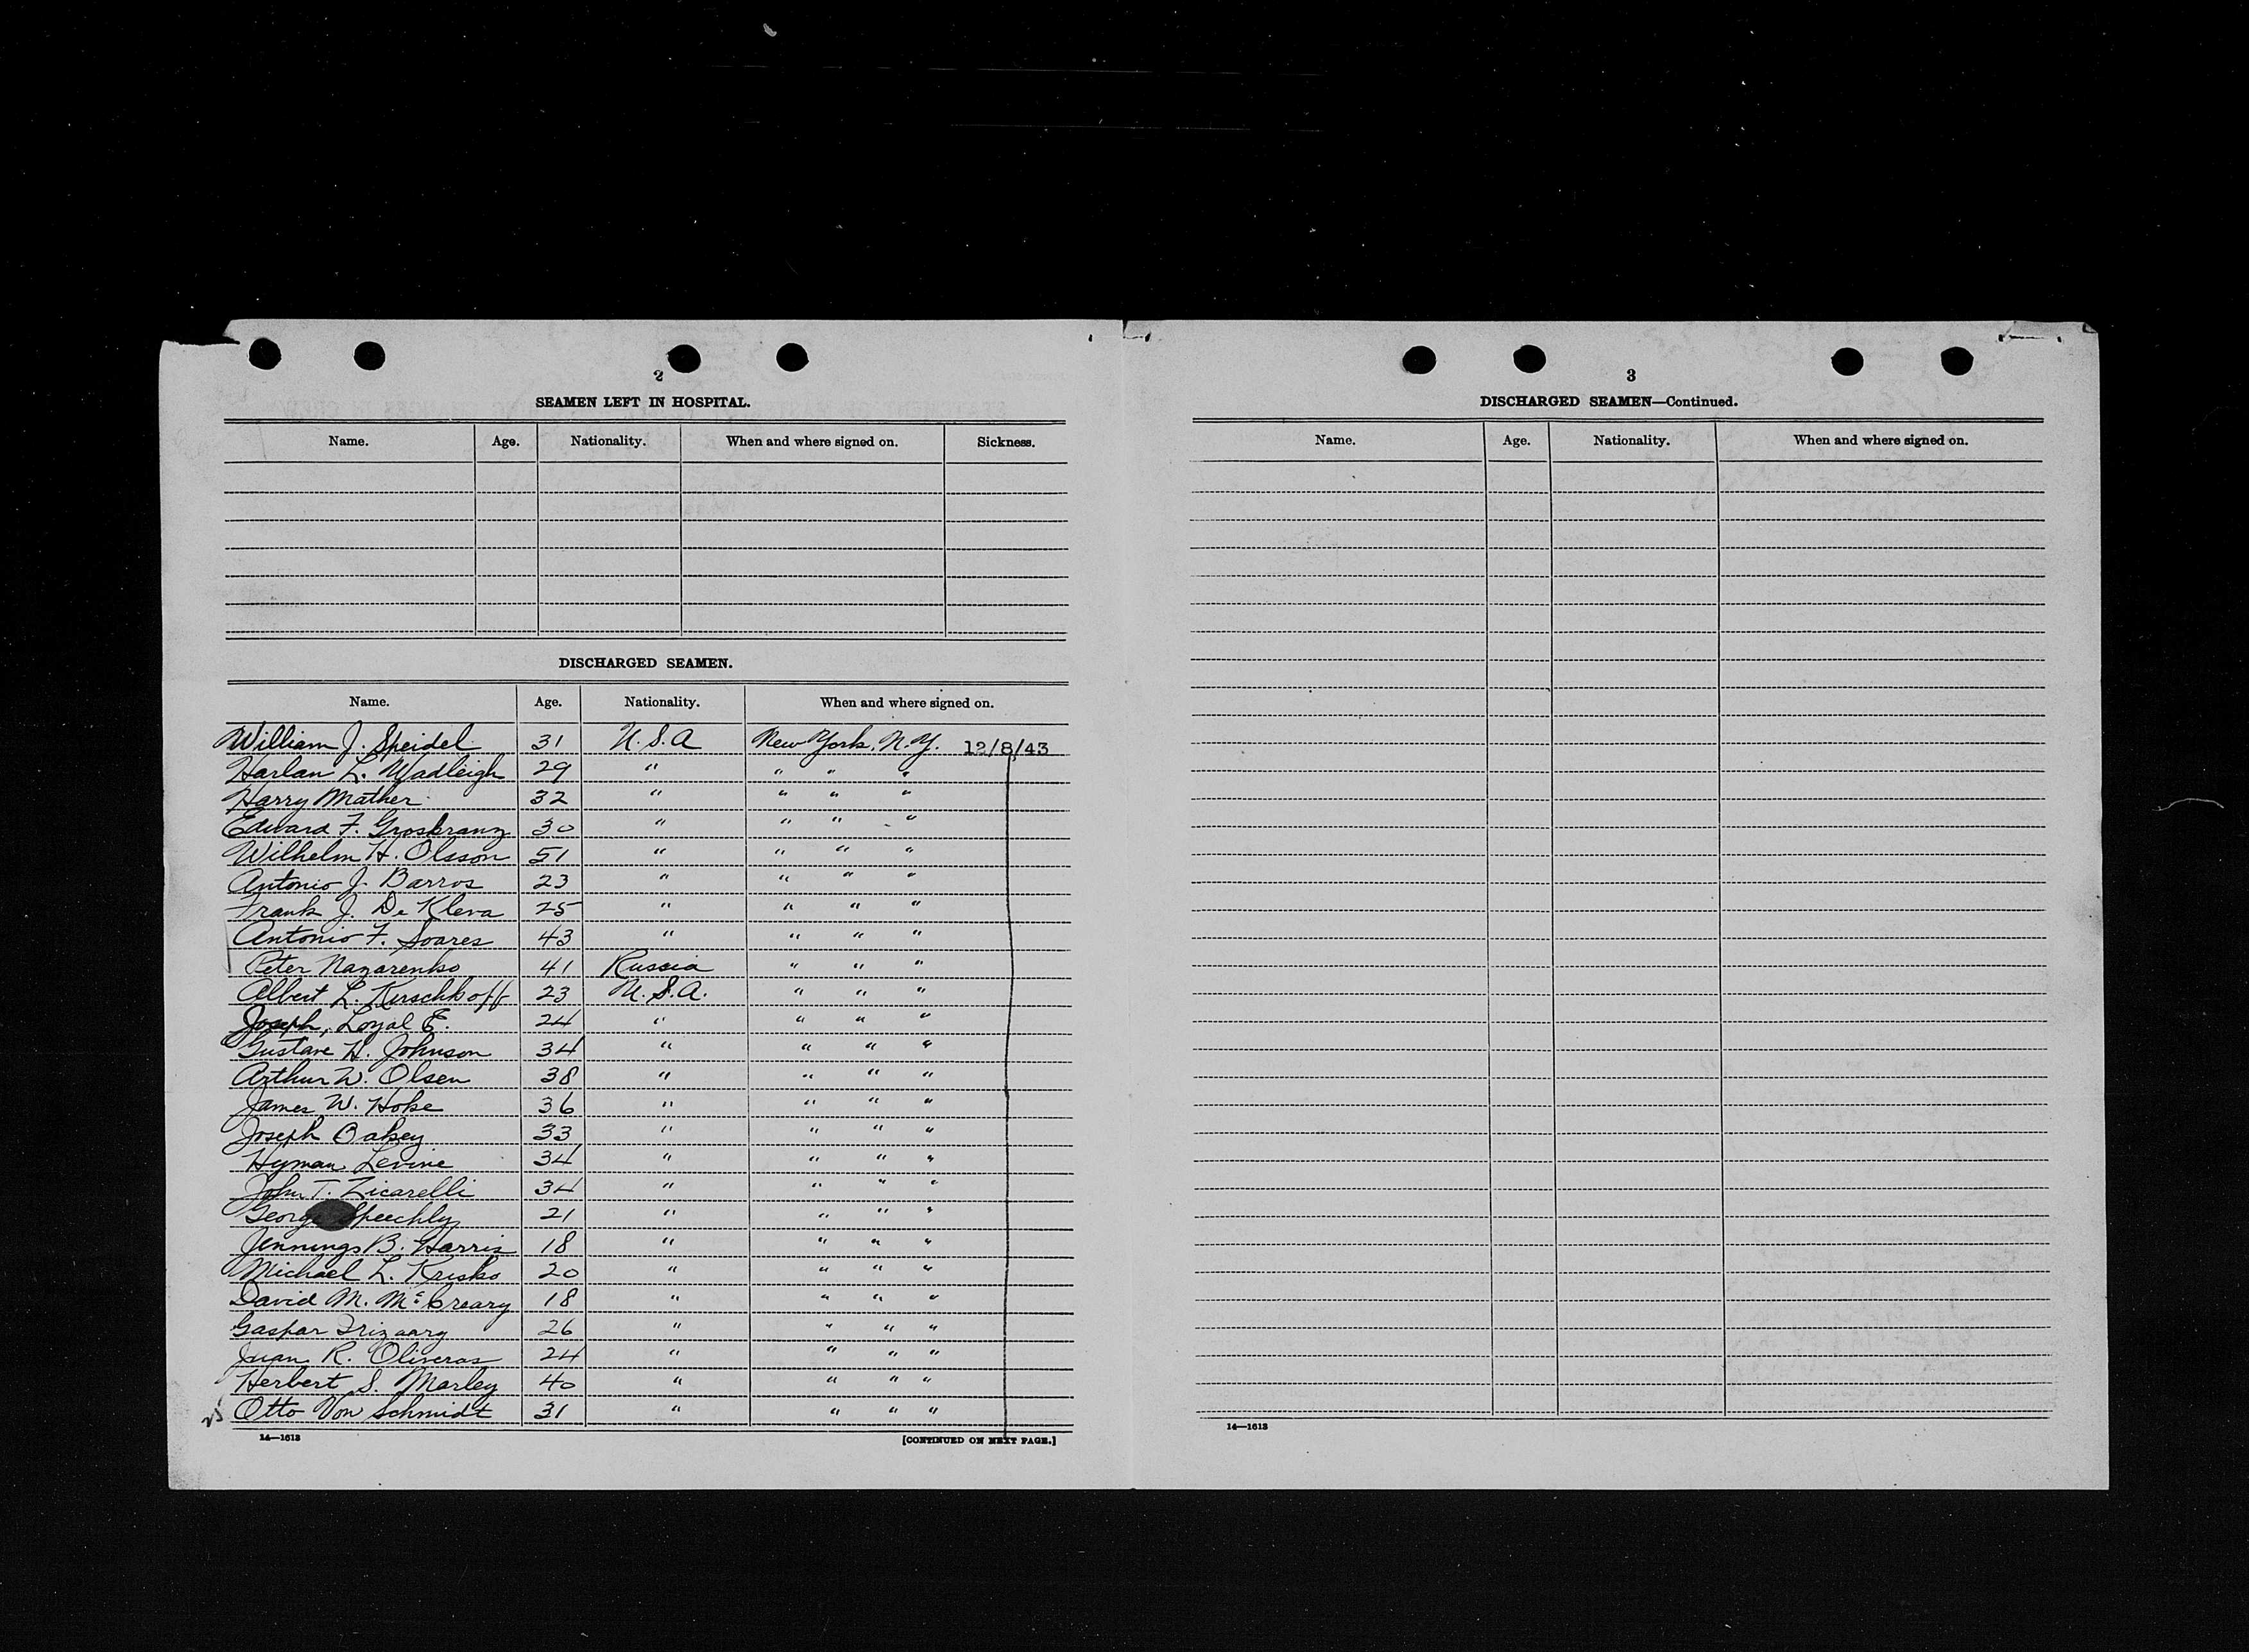 2
SEAMEN LEFT IN HOSPITAL.
Name. Age. Nationality. When and where signed on. Sickness.
DISCHARGED SEAMEN.
Name. Age. Nationality. When and where signed on.
William J. Speidel 31 U.S.A New York, N.Y. 12/8/43
Harlan L. Wadleigh 29 " " " "
Harry Mather 32 " " " "
Edward F. Grosbranz 30 " " " "
Wilhelm H. Olsson 51 " " " "
Antonio J. Barros 23 " " " "
Frank J. De Kleva 25 " " " "
Antonio F. Soares 43 " " " "
Peter Nazarenko 41 Russia " " "
Albert L. Kirschhoff 23 U.S.A. " " "
Joseph, Loyal E. 24 " " " "
Gustave H. Johnson 34 " " " "
Arthur W. Olsen 38 " " " "
James W. Hoke 36 " " " "
Joseph Oakey 33 " " " "
Hyman Levine 34 " " " "
John T. Zicarelli 34 " " " "
George Speechly 21 " " " "
Jennings B. Harris 18 " " " "
Michael L. Krisko 20 " " " "
David M. McCreary 18 " " " "
Gaspar Irizarry 26 " " " "
Juan R. Oliveras 24 " " " "
Herbert S. Marley 40 " " " "
25 Otto Von Schmidt 31 " " " "
14—1613 [CONTINUED ON NEXT PAGE.]
3
DISCHARGED SEAMEN—Continued.
Name. Age. Nationality. When and where signed on.
14—1613